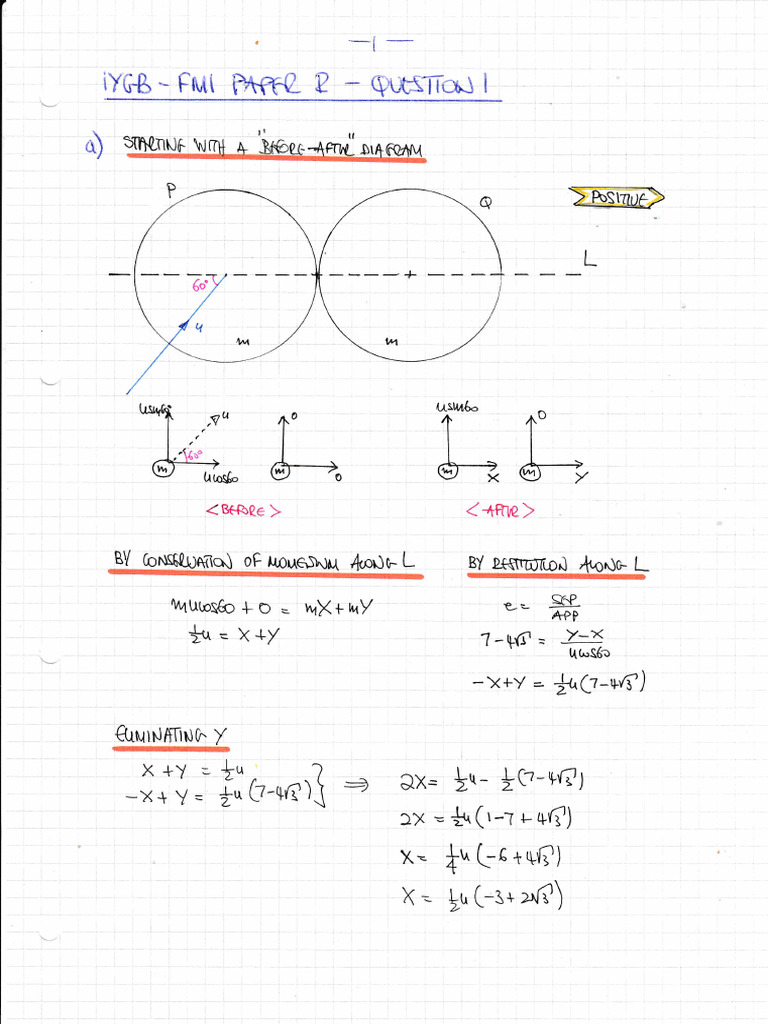 -1-
IYGB - FM1 PAPER R - QUESTION 1
a) STARTING WITH A "BEFORE-AFTER" DIAGRAM
P
Q
POSITIVE
L
60°
u
m
m
usin60
u
0
usin60
0
m
60°
ucos60
m
0
m
X
m
Y
<BEFORE>
<AFTER>
BY CONSERVATION OF MOMENTUM ALONG L
mucos60 + 0 = mX + mY
½u = X + Y
BY RESTITUTION ALONG L
e = SEP/APP
7 - 4√3 = (Y - X)/(ucos60)
-X + Y = ½u(7 - 4√3)
ELIMINATING Y
X + Y = ½u
-X + Y = ½u(7 - 4√3) } ⇒
2X = ½u - ½(7 - 4√3)
2X = ½u(1 - 7 + 4√3)
X = ¼u(-6 + 4√3)
X = ½u(-3 + 2√3)